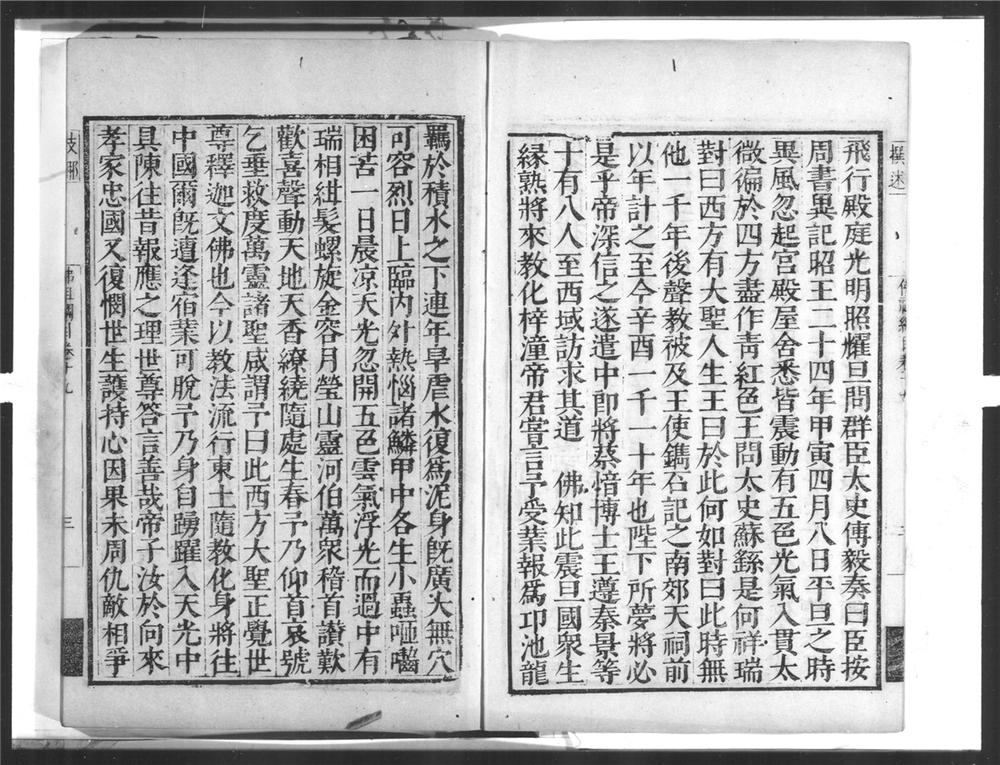 撰述
飛行殿庭光明照燿旦問群臣太史傅毅奏曰臣按
周書異記昭王二十四年甲寅四月八日平旦之時
異風忽起宮殿屋舍悉皆震動有五色光氣入貫太
微徧於四方盡作青紅色王問太史蘇繇是何祥瑞
對曰西方有大聖人生王曰於此何如對曰此時無
他一千年後聲教被及王使鐫石記之南郊天祠前
以年計之至今辛酉一千一十年也陛下所夢將必
是乎帝深信之遂遣中郎將蔡愔博士王遵秦景等
十有八人至西域訪求其道 佛知此震旦國衆生
緣熟將來教化梓潼帝君嘗言予受業報爲邛池龍
羈於積水之下連年旱虐水復爲泥身旣廣大無穴
可容烈日上臨內外熱惱諸鱗甲中各生小蟲咂囓
困苦一日晨凉天光忽開五色雲氣浮光而過中有
瑞相紺髮螺旋金容月瑩山靈河伯萬衆稽首讚歎
歡喜聲動天地天香繚繞隨處生春予乃仰首哀號
乞垂救度萬靈諸聖咸謂予曰此西方大聖正覺世
尊釋迦文佛也今以教法流行東土隨教化身將往
中國爾旣遭逢宿業可脫予乃身自踴躍入天光中
具陳往昔報應之理世尊答言善哉帝子汝於向來
孝家忠國又復憫世生護持心因果未周仇敵相爭
支那
佛祖綱目卷十九
三